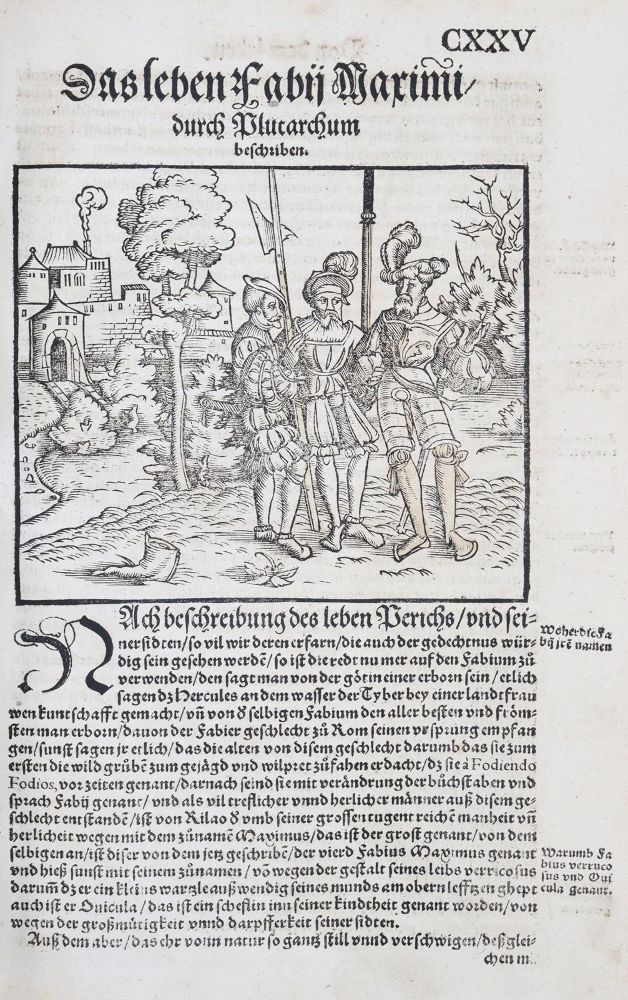 CXXV
Das leben Fabij Maximi/
durch Plutarchum
beschriben.
NAch beschreibung des leben Periclis/vnd sei-
ner sidten/so vil wir deren erfarn/die auch der gedechtnus wür-
dig sein gesehen werdē/so ist die redt nu mer auf den Fabium zů
verwenden/den sagt man von der götin einer erborn sein/etlich
sagen dz Hercules an dem wasser der Tyber bey einer landt frau
wen kuntschafft gemacht/vñ von d selbigen Fabium den aller besten vnd fröm-
sten man erborn/dauon der Fabier geschlecht zů Rom seinen vrsprung empfan
gen/sunst sagen jr etlich/das die alten von disem geschlecht darumb das sie zum
ersten die wild grůben zum gejägd vnd wilpret zůfahen erdacht/dz sie à Fodiendo
Fodios, vor zeiten genant/darnach seind sie mit verändrung der bůchstaben vnd
sprach Fabij genant/vnd als vil treflicher vnnd herlicher männer auß disem ge-
schlecht entstanden/ist von Rilao d vmb seiner grossen tugent reichen manheit vñ
herlicheit wegen mit dem zůnamen Maximus/das ist der grost genant/von dem
selbigen an/ist diser von dem jetz geschriben/der vierd Fabius Maximus genant
vnd hieß sunst mit seinem zůnamen/von wegen der gestalt seines leibs verricosus
darum dz er ein kleins wartzle außwendig seines munds am obern lefftzen ghept
auch ist er Ouicula/das ist ein scheflin inn seiner kindtheit genant worden/von
wegen der großmütigkeit vnnd darpfferkeit seiner sidten.
Auß dem aber/das ehr vonn natur so gantz still vnnd verschwigen/deßglei-
chen
Woher die Fa
bij jrē namen
Warumb Fa
bius verruco
sus vnd Oui
cula genant.